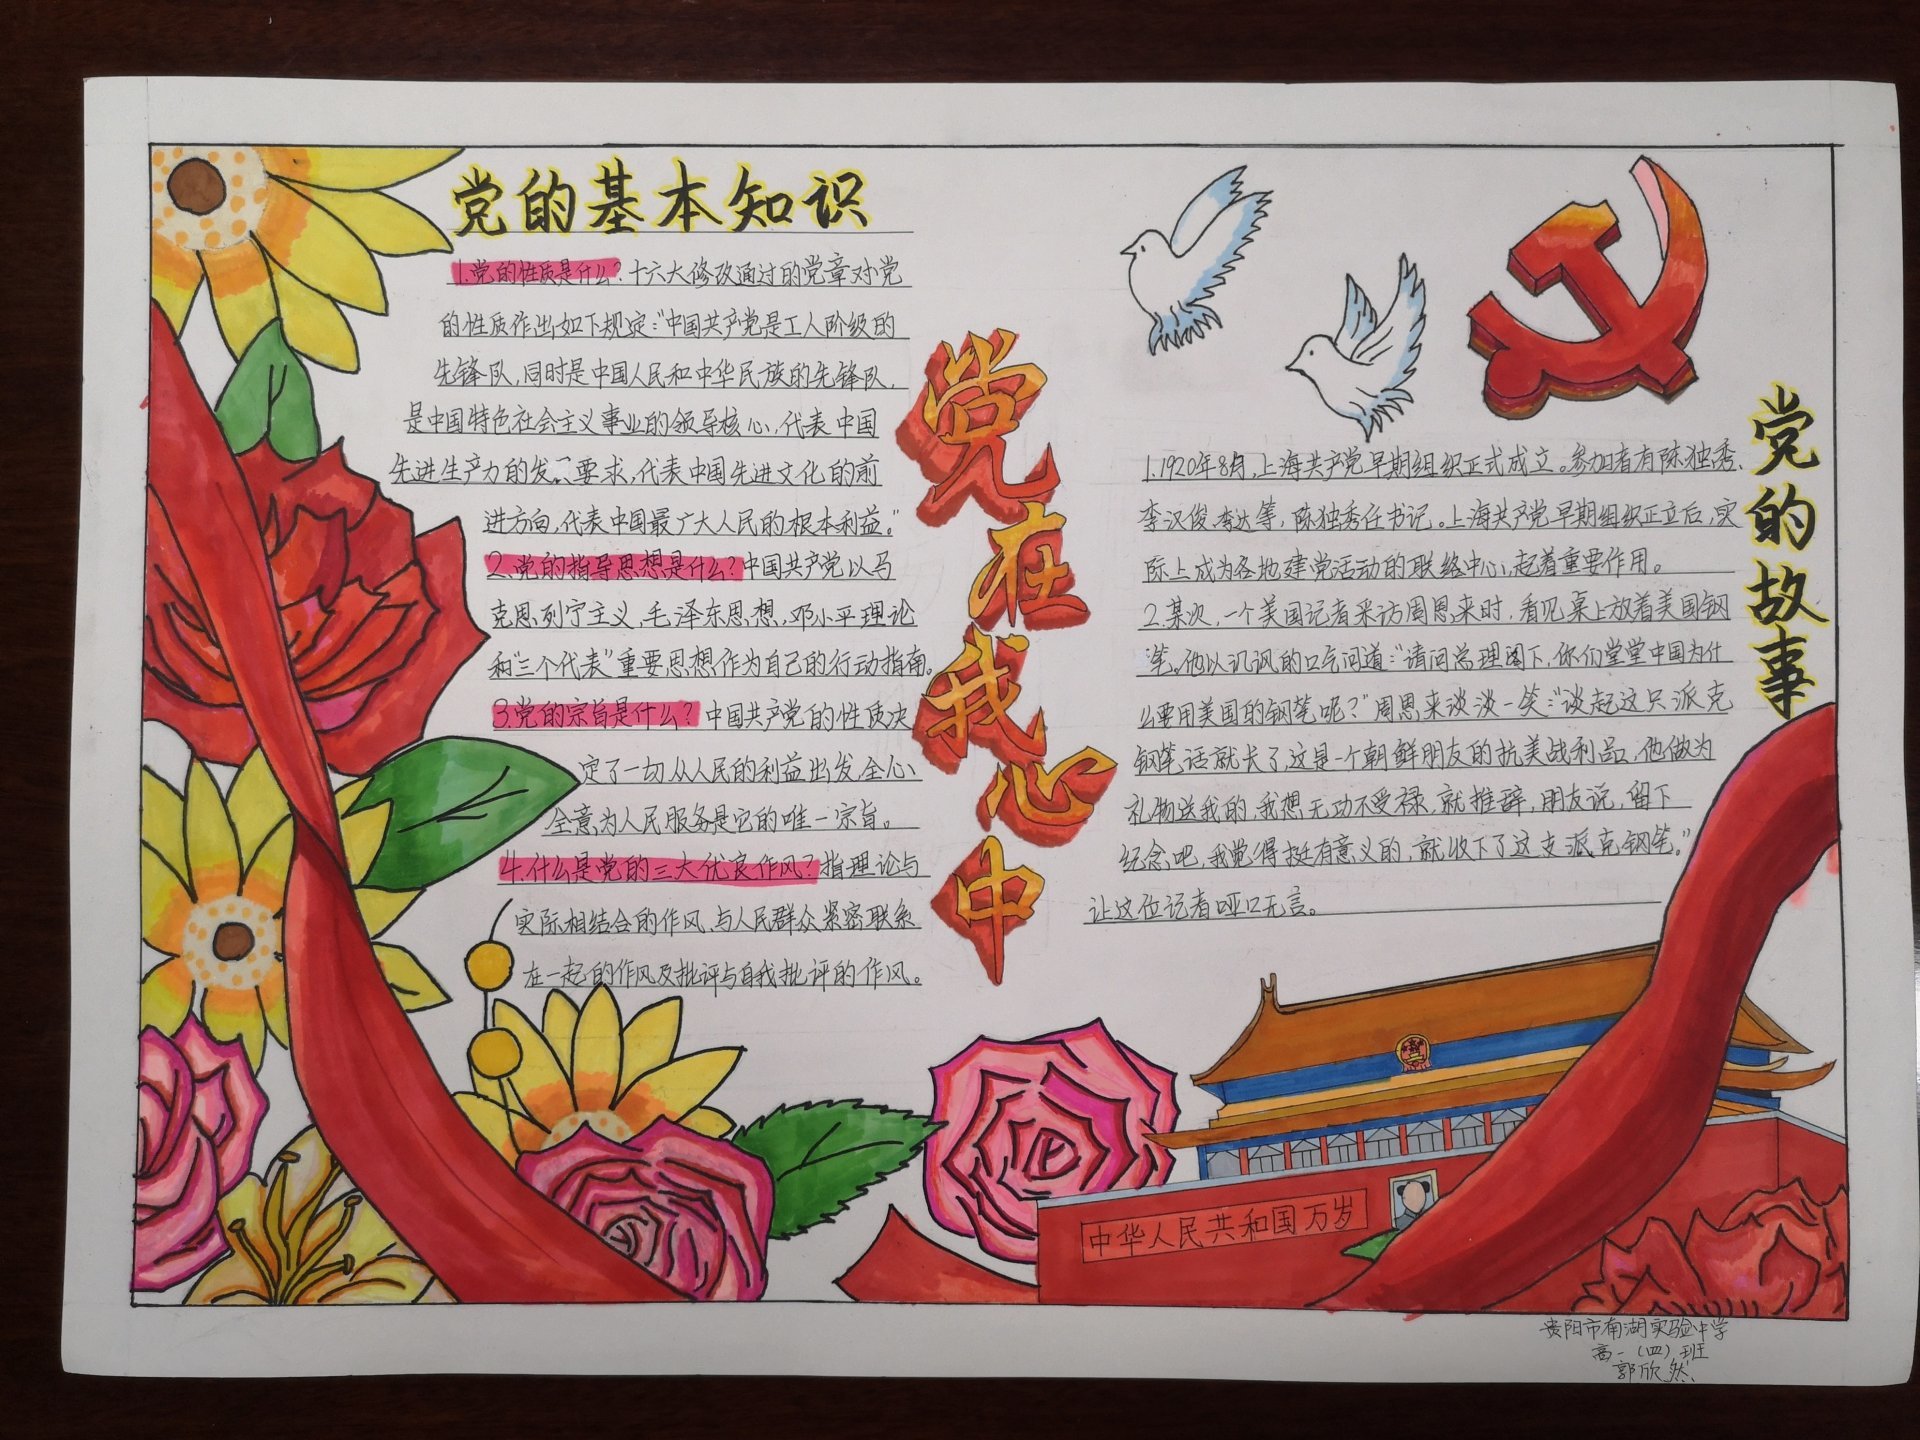 党的基本知识
1.党的性质是什么？十六大修改通过的党章对党
的性质作出如下规定："中国共产党是工人阶级的
先锋队，同时是中国人民和中华民族的先锋队，
是中国特色社会主义事业的领导核心，代表中国
先进生产力的发 要求，代表中国先进文化的前
进方向，代表中国最广大人民的根本利益。"
2.党的指导思想是什么？中国共产党以马
克思列宁主义，毛泽东思想，邓小平理论
和"三个代表"重要思想作为自己的行动指南。
3.党的宗旨是什么？中国共产党的性质决
定了一切从人民的利益出发，全心
全意为人民服务是它的唯一宗旨。
4.什么是党的三大优良作风？指理论与
实际相结合的作风，与人民群众紧密联系
在一起的作风及批评与自我批评的作风。
党在我心中
党的故事
1.1920年8月，上海共产党早期组织正式成立。参加者有陈独秀、
李汉俊、李达等，陈独秀任书记。上海共产党早期组织正立后，实
际上成为各地建党活动的联络中心，起着重要作用。
2.某次，一个美国记者采访周恩来时，看见桌上放着美国钢
笔。他以讥讽的口气问道："请问总理阁下，你们堂堂中国为什
么要用美国的钢笔呢？"周恩来淡淡一笑："谈起这只派克
钢笔话就长了，这是一个朝鲜朋友的抗美战利品，他做为
礼物送我的，我想无功不受禄，就推辞，朋友说，留下
纪念吧，我觉得挺有意义的，就收下了这支派克钢笔。"
让这位记者哑口无言。
中华人民共和国万岁
贵阳市南湖实验中学
高一（四）班
郭欣然